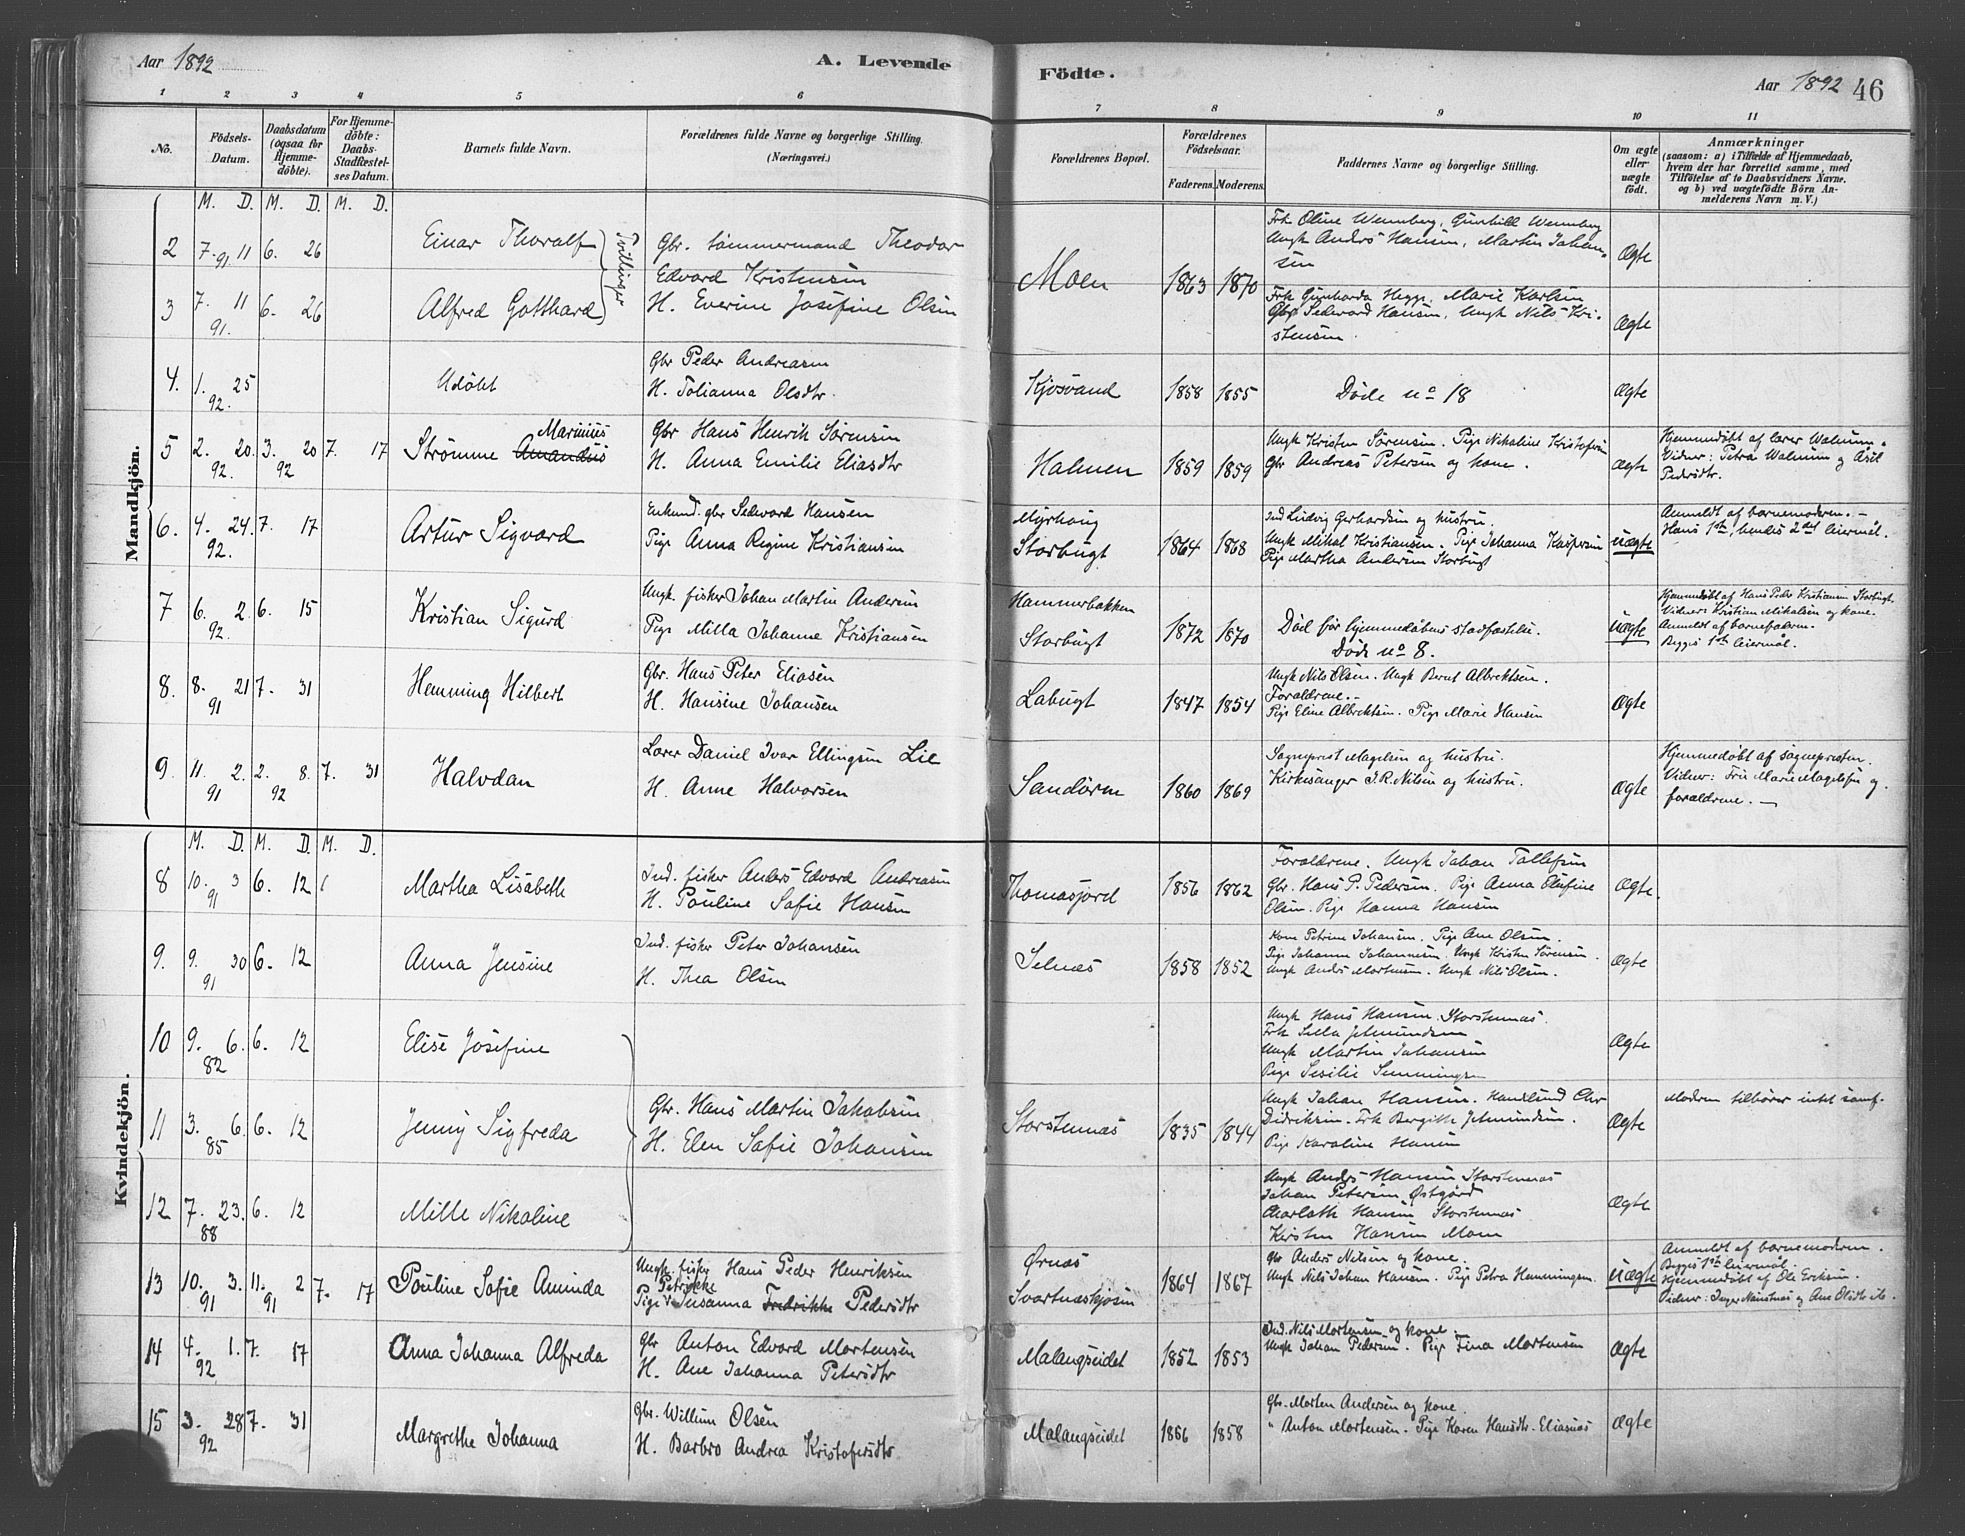 Aar 1892
A. Levende
Födte.
Aar 1892
46
1 2 3 4 5 6 7 8 9 10 11
No.
Födsels-Datum.
Daabsdatum (ogsaa for Hjemme-döbte).
For Hjemme-döbte: Daabs-Stadfæstel-ses Datum.
Barnets fulde Navn.
Forældrenes fulde Navne og borgerlige Stilling. (Næringsvei.)
Forældrenes Bopæl.
Forældrenes Födselsaar.
Faderens. Moderens.
Faddernes Navne og borgerlige Stilling.
Om ægte eller uægte födt.
Anmærkninger
(saasom: a) i Tilfælde af Hjemmedaab, hvem der har forrettet samme, med Tilföielse af to Daabsvidners Navne. og b) ved uægtefödte Börn Anmelderens Navn m. V.)
Mandkjön.
M. D. M. D. M. D.
2 7. 11 91 6. 26 Einar Thoralf
Tvillinger
Gbr. tømmermand Theodor
Edvard Kristensen
H. Everine Josefine Olsen
Moen 1863 1870
Frk Oline Wennberg, Gunhild Wennberg
Ungk Anders Hansen, Martin Johan-
sen
Ægte
3 7. 11 91. 6. 26 Alfred Gotthard
Frk Gunharda Hegge, Marie Karlsen
Gbr Sedevard Hansen, Ungk Nils Kri-
stensen
Ægte
4. 1. 25 92. Udöbt
Gbr Peder Andreasen
H. Tolianna Olsdtr.
Kjosvand 1858 1855
Döde no 18
Ægte
5 2. 20. 92. 3. 20 92 7. 17 Strömme Amandus Marinius
Gbr Hans Henrik Sørensen
H. Anna Emilie Eliasdtr
Halmen 1859 1859
Ungk Kristen Sørensen. Pige Nikoline Kristofersen
Gbr Andreas Petersen og kone.
Ægte
Hjemmedöbt af lærer Walnum.
Vidner: Petra Walnum og Åsel
Pedersdtr.
6. 4. 24. 92. 7. 17 Artur Sigvard
Enkemd. gbr Sedevard Hansen
Pige Anna Regine Kristiansen
Myrhaug
Storbugt
1864 1868
Ind Ludvig Gerhardsen og hustru.
Ungk Mikal Kristiansen. Pige Johanna Kaspersen
Pige Martha Andersen Storbugt
uægte
Anmeldt af barnemoderen. –
Hans 1ste, hendes 2det leiermål.
7 6. 2. 92. 6. 15 Kristian Sigurd
Ungk. fisker Johan Martin Andersen
Pige Milla Johanne Kristiansen
Hammerbakken
Storbugt
1872 1870
Död för hjemmedåbens stadfæstelse.
Döde no 8.
uægte
Hjemmedöbt af Hans Peder Kristiansen Storbugt.
Vidner: Kristian Mikalsen og kone.
Anmeldt af barnefaderen.
Begges 1ste leiermål.
8. 8. 21 91 7. 31 Hemming Hilbert
Gbr. Hans Peter Eliasen
H. Hansine Johansen
Labugt 1847 1854
Ungk Nils Olsen. Ungk Bernt Albrektsen.
Forældrene. –
Pige Eline Albrektsen. Pige Marie Hansen
Ægte
9. 11. 2. 91 2. 8. 92 7. 31 Halvdan
Lærer Daniel Ivar Ellingsen Lie
H. Anne Halvorsen
Sandören 1860 1869
Sogneprest Magelsen og hustru.
Kirkesanger J. R. Nilsen og hustru.
Ægte
Hjemmedöbt af sognepresten.
Vidner: Fru Marie Magelsen og
forældrene. –
Kvindekjön.
M. D. M. D. M. D.
8 10. 3 91 6. 12 Martha Lisabeth
Ind. fisker Anders Edvard Andreasen
H. Pouline Sofie Hansen
Thomasjord 1856 1862
Forældrene. Ungk Johan Tollefsen
Gbr. Hans P. Pedersen. Pige Anna Olufine
Olsen. Pige Hanna Hansen
Ægte.
9. 9. 30 91 6. 12 Anna Jensine
Ind. fisker Peter Johansen
H. Thea Olsen
Selnæs 1858 1852
Kone Petrine Johansen. Pige Ane Olsen.
Pige Johanne Johannesen. Ungk Kristen Sørensen.
Ungk Anders Mortensen. Ungk Nils Olsen.
Ægte
10 9. 6. 82 6. 12 Elise Josefine
Ungk Hans Hansen Storstennæs.
Ungk Martin Johansen
Ægte
11 3. 6. 85 6. 12 Jenny Sigfreda
Gbr. Hans Martin Jakobsen
H. Elen Sofie Johansen
Storstennæs 1835 1844
Ungk Johan Hansen. Handlend Chr
Didriksen. Frk Bergith
Pige Karoline Hansen
Ægte
Modren tilhører intet samf.
12 7. 23. 88 6. 12 Mille Nikoline
Ungk Anders Hansen Storstennæs
Johan Petersen Østgård
Charloth Hansen Storstennæs
Kirsten Hansen Moen
Ægte
13 10. 3. 91 11. 2 91 7. 17 Pouline Sofie Aminda
Ungk. fisker Hans Peder Henriksen
Petrikke
Pige Susanna Fredrikke Pedersdtr
Ørnæs
Svartnæskjosen
1864 1867
Gbr Anders Nilsen og kone.
Ungk Nils Johan Hansen. Pige Petra Hemmingsen.
uægte
Anmeldt af barnemoderen.
Begges 1ste leiermål.
Hjemmedöbt af Ole Eriksen.
14 4. 1. 92 7. 17 Anna Johanna Alfreda
Gbr Anton Edvard Mortensen
H. Ane Johanna Petersdtr
Malangseidet 1852 1853
Ind. Nils Mortensen og kone.
Ungk Johan Pedersen. Pige Fina Mortensen
Ægte
15 3. 28 92 7. 31 Margrethe Johanna
Gbr. Willum Olsen
H. Barbro Andrea Kristofersdtr
Malangseidet 1866 1858
Gbr. Morten Andersen og kone.
" Anton Mortensen. Pige Karen Hansdtr. Eliasnæs
Ægte